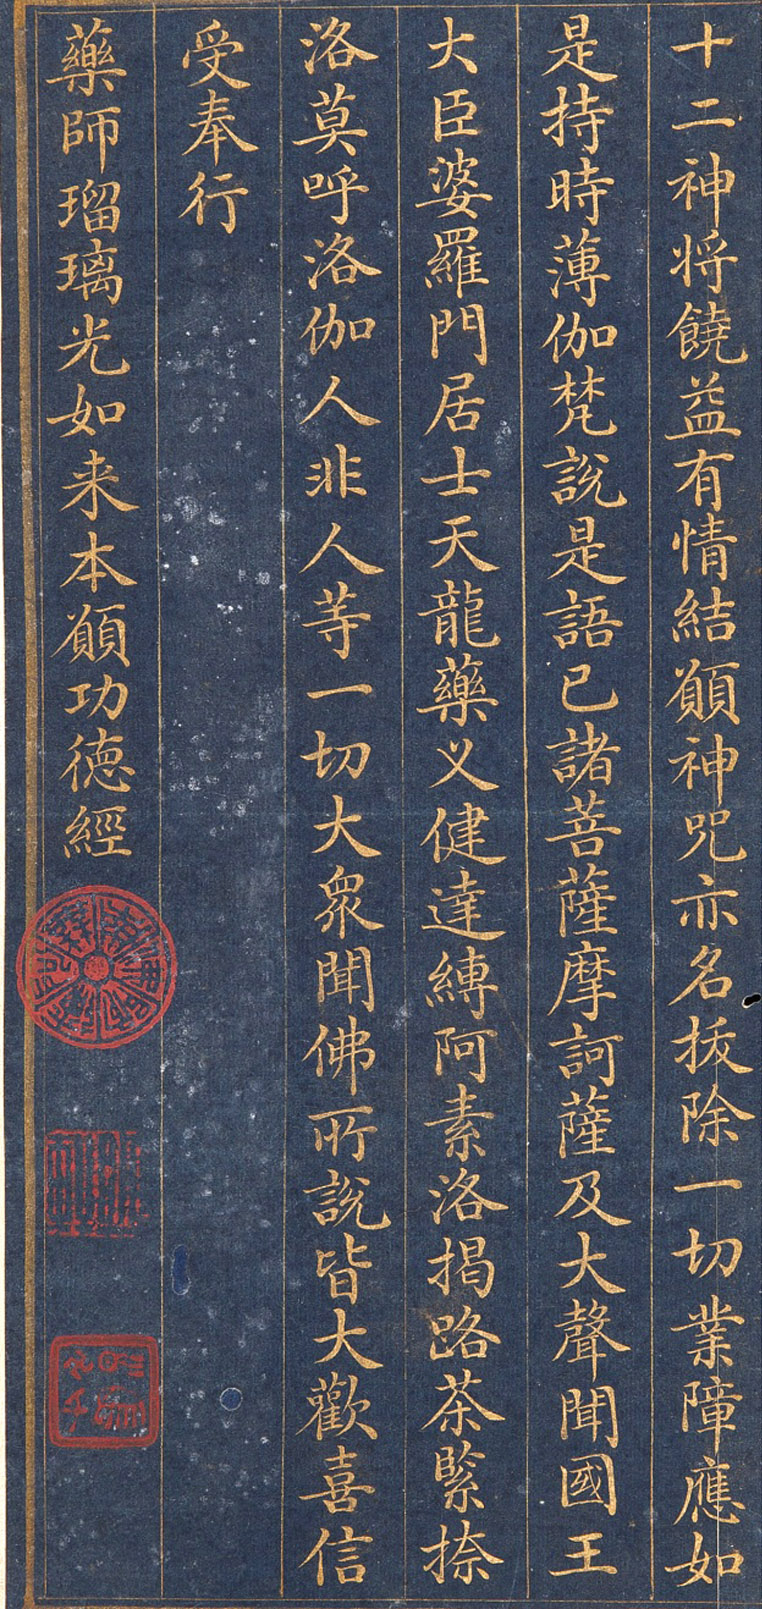 十二神将饒益有情結願神咒亦名拔除一切業障應如
是持時薄伽梵說是語已諸菩薩摩訶薩及大聲聞國王
大臣婆羅門居士天龍藥义健達縛阿素洛揭路茶緊捺
洛莫呼洛伽人非人等一切大衆聞佛所說皆大歡喜信
受奉行
藥師瑠璃光如来本願功德經